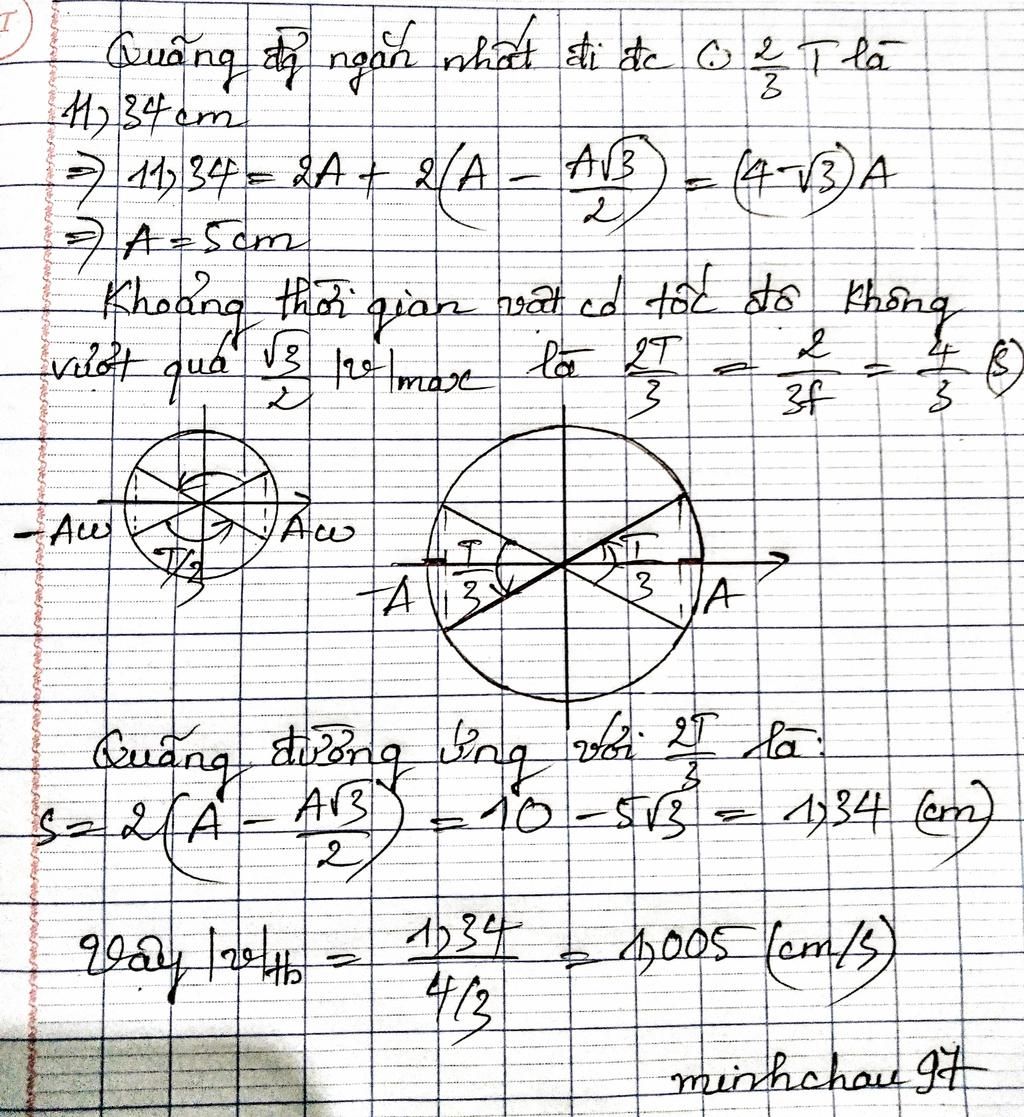 I
Quãng đg ngắn nhất đi đc (.) 2/3 T là
11,34cm
=> 11,34 = 2A + 2(A - A√3/2) = (4-√3)A
=> A = 5cm
Khoảng thời gian vật có tốc độ không
vượt quá √3/2 |v|max là 2T/3 = 2/3f = 4/3 (s)
-Aω T/3 Aω
-A T/3 T/3 A
Quãng đường ứng với 2T/3 là:
s = 2(A - A√3/2) = 10 - 5√3 = 1,34 (cm)
Vậy |v|tb = 1,34 / 4/3 = 1,005 (cm/s)
minhchau 97